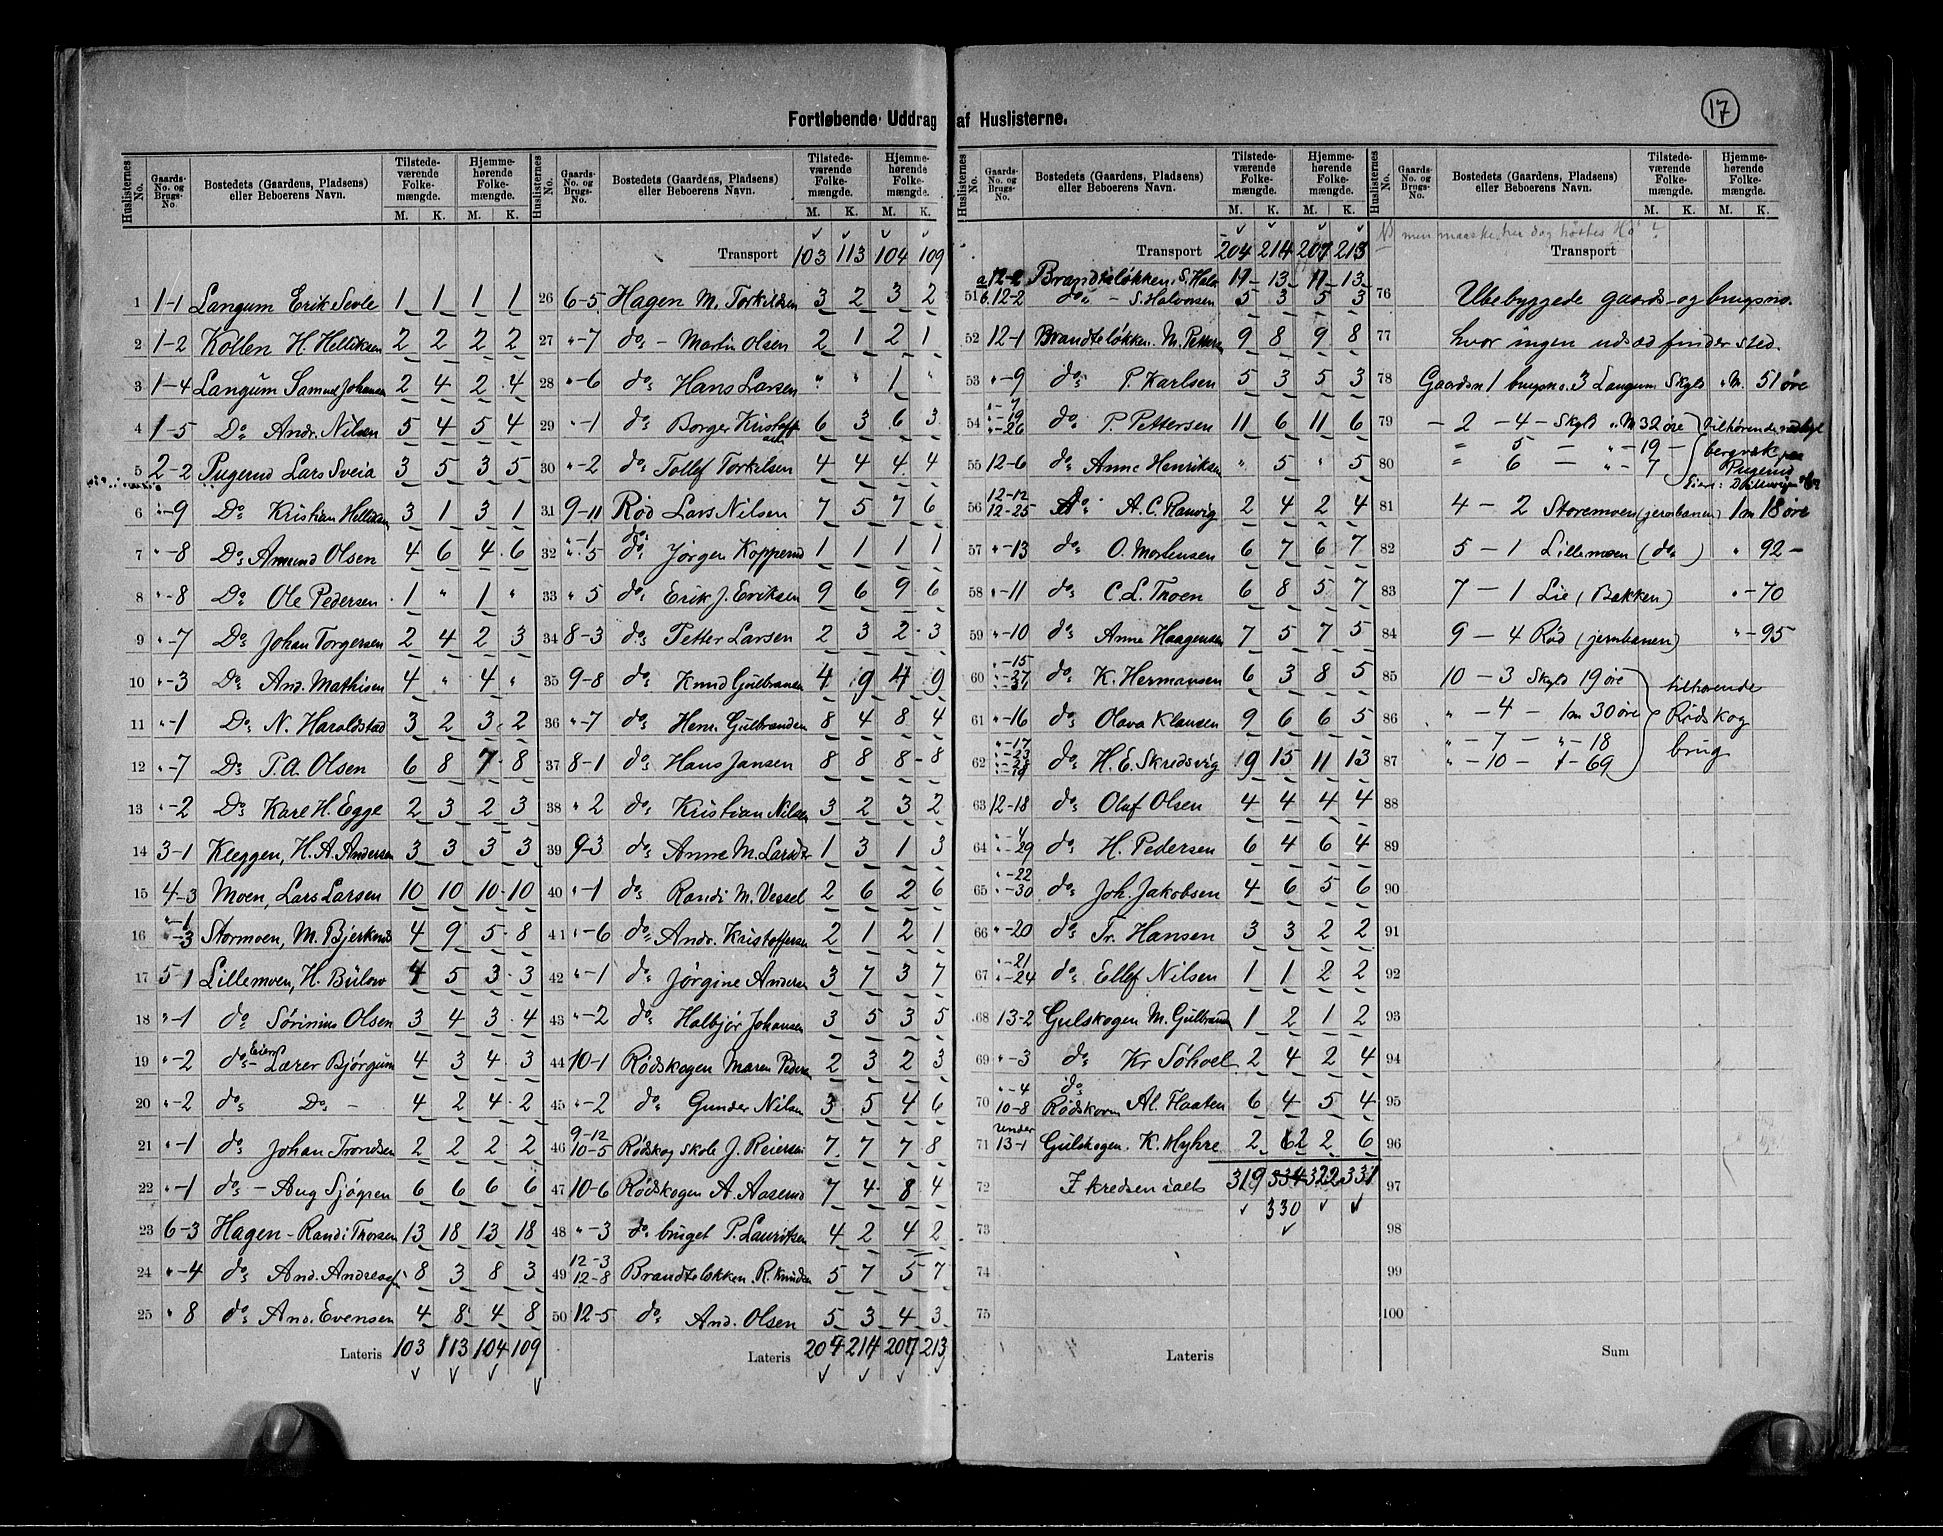 17
Fortløbende Uddrag af Huslisterne.
Huslisternes No. | Gaards-No. og Brugs-No. | Bostedets (Gaardens, Pladsens) eller Beboerens Navn. | Tilstedeværende Folkemængde. M. K. | Hjemmehørende Folkemængde. M. K.
1 1-1 Langum Erik Sevle 1 1 1 1
2 1-2 Kollen H. Helliksen 2 2 2 2
3 1-4 Langum Samuel Johansen 2 4 2 4
4 1-5 Do Andr. Nilsen 5 4 5 4
5 2-2 Pugerud Lars Sveia 3 5 3 5
6 "-9 Do Kristian Helliksen 3 1 3 1
7 "-8 Do Amund Olsen 4 6 4 6
8 "-8 Do Ole Pedersen 1 " 1 "
9 "-7 Do Johan Torgersen 2 4 2 3
10 "-3 Do And. Mathisen 4 " 4 "
11 "-1 Do N. Haraldstad 3 2 3 2
12 "-7 Do P.A. Olsen 6 8 7 8
13 "-2 Do Karl H. Egge 2 3 2 3
14 3-1 Kleggen, H. A. Andersen 3 3 3 3
15 4-3 Moen, Lars Larsen 10 10 10 10
16 "-1 "-3 Stormoen, M. Bjerknes 4 9 5 8
17 5-1 Lillemoen, H. Bülow 4 5 3 3
18 "-1 do Sørinius Olsen 3 4 3 4
19 "-2 do Eier Lærer Bjørgum 4 3 4 3
20 "-2 do Do - 4 2 4 2
21 "-1 do Johan Trondsen 2 2 2 2
22 "-1 do - Aug Sjøgren 6 6 6 6
23 6-3 Hagen - Randi Thorsen 13 18 13 18
24 "-4 do And. Andreas 8 3 8 3
25 " 8 do And. Evensen 4 8 4 8
Lateris 103 113 104 109
Huslisternes No. | Gaards-No. og Brugs-No. | Bostedets (Gaardens, Pladsens) eller Beboerens Navn. | Tilstedeværende Folkemængde. M. K. | Hjemmehørende Folkemængde. M. K.
Transport 103 113 104 109
26 6-5 Hagen M. Torkildsen 3 2 3 2
27 "-7 do - Martin Olsen 2 1 2 1
28 "-6 do Hans Larsen " " 1 "
29 "-1 do Borger Kristoff 6 3 6 3
30 "-2 do Tollef Torkilsen 4 4 4 4
31 9-11 Rød Lars Nilsen 7 5 7 6
32 "-1 "-5 do Jørgen Kopperud 1 1 1 1
33 " 5 do Erik J. Eriksen 9 6 9 6
34 8-3 do Petter Larsen 2 3 2 3
35 9-8 do Knud Gulbransen 4 9 4 9
36 "-7 do Henr. Gulbrandsen 8 4 8 4
37 8-1 do Hans Jansen 8 8 8 8
38 " 2 do Kristian Nilsen 3 2 3 2
39 9-3 do Anne M. Larsdtr 1 3 1 3
40 "-1 do Randi M. Vessel 2 6 2 6
41 "-6 do Andr. Kristoffersen 2 1 2 1
42 "-1 do Jørgine Andersen 3 7 3 7
43 "-2 do Halbjør Johansen 3 5 3 5
44 10-1 Rødskogen Maren Pedersen 2 3 2 3
45 "-2 do Gunder Nilsen 3 5 4 6
46 9-12 10-5 Rødskog skole J. Reiersen 7 7 7 8
47 10-6 Rødskogen A. Aaserud 7 4 8 4
48 "-3 do bruget P. Lauritsen 4 2 4 2
49 12-3 12-8 Brandteløkken. R. Knudsen 5 7 5 7
50 12-5 do And. Olsen 5 3 4 3
Lateris 204 214 207 213
Huslisternes No. | Gaards-No. og Brugs-No. | Bostedets (Gaardens, Pladsens) eller Beboerens Navn. | Tilstedeværende Folkemængde. M. K. | Hjemmehørende Folkemængde. M. K.
Transport 204 214 207 213
51 a 12-2 Brandteløkken, S. Halv 11 13 11 13
b. 12-2 do - S. Halvorsen 5 3 5 3
52 12-1 Brandteløkken. M. Pettersen 9 8 9 8
53 "-9 do P. Karlsen 5 3 5 3
54 "-7 "-19 "-26 do P. Pettersen 11 6 11 6
55 12-6 do Anne Henriksen " 5 " 5
56 12-12 12-25 do A. C. Ranvig 2 4 2 4
57 "-13 do O. Mortensen 6 7 6 7
58 "-11 do C. L. Thoen 6 8 5 7
59 "-10 do Anne Haagensen 7 5 7 5
60 "-15 "-27 "-31 do K. Hermansen 6 3 8 5
61 "-16 do Olava Klausen 9 6 6 5
62 "-17 "-23 "-28 "-19 do H. E. Skredsvig 19 15 11 13
63 12-18 do Olaf Olsen 4 4 4 4
64 "-4 "-29 do H. Pedersen 6 4 6 4
65 "-22 "-30 do Joh. Jakobsen 4 6 5 6
66 "-20 do Tr. Hansen 3 3 2 2
67 "-21 "-24 do Ellef Nilsen 1 1 2 2
68 13-2 Gulskogen M. Gulbrandsen 1 2 1 2
69 "-3 do Kr Søhoel 2 4 2 4
70 "-4 10-8 do Rødskoven Al. Haaten 6 4 5 4
71 under 13-1 Gulskogen. K. Myhre 2 6 2 6
72 I kredsen ialt 319 334 322 331
330
73
74
75
Lateris
Huslisternes No. | Gaards-No. og Brugs-No. | Bostedets (Gaardens, Pladsens) eller Beboerens Navn. | Tilstedeværende Folkemængde. M. K. | Hjemmehørende Folkemængde. M. K.
NB men maaske her dog høstes Hø ?
Transport
76 Ubebyggede gaards- og brugsno.
77 hvor ingen udsæd finder sted.
78 Gaardsn 1 brugsno. 3 Langum Skyld " M. 51 øre
79 - 2 - 4 - Skyld " M 32 øre tilhørende
80 " 5 - " - 19 - bergværk
" 6 - " - 7 Pugerud
81 4 - 2 Storemoen (jernbanen) 1 m 18 øre
82 5 - 1 Lillemoen (do) " 92 -
83 7 - 1 Lie (Bakken) " - 70
84 9 - 4 Rød (jernbanen) " - 95
85 10 - 3 Skyld 19 øre tilhørende
86 " - 4 - 1 m 30 øre Rødskog
" - 7 - " - 18 brug
87 " - 10 - 1 - 69
88
89
90
91
92
93
94
95
96
97
98
99
100
Sum